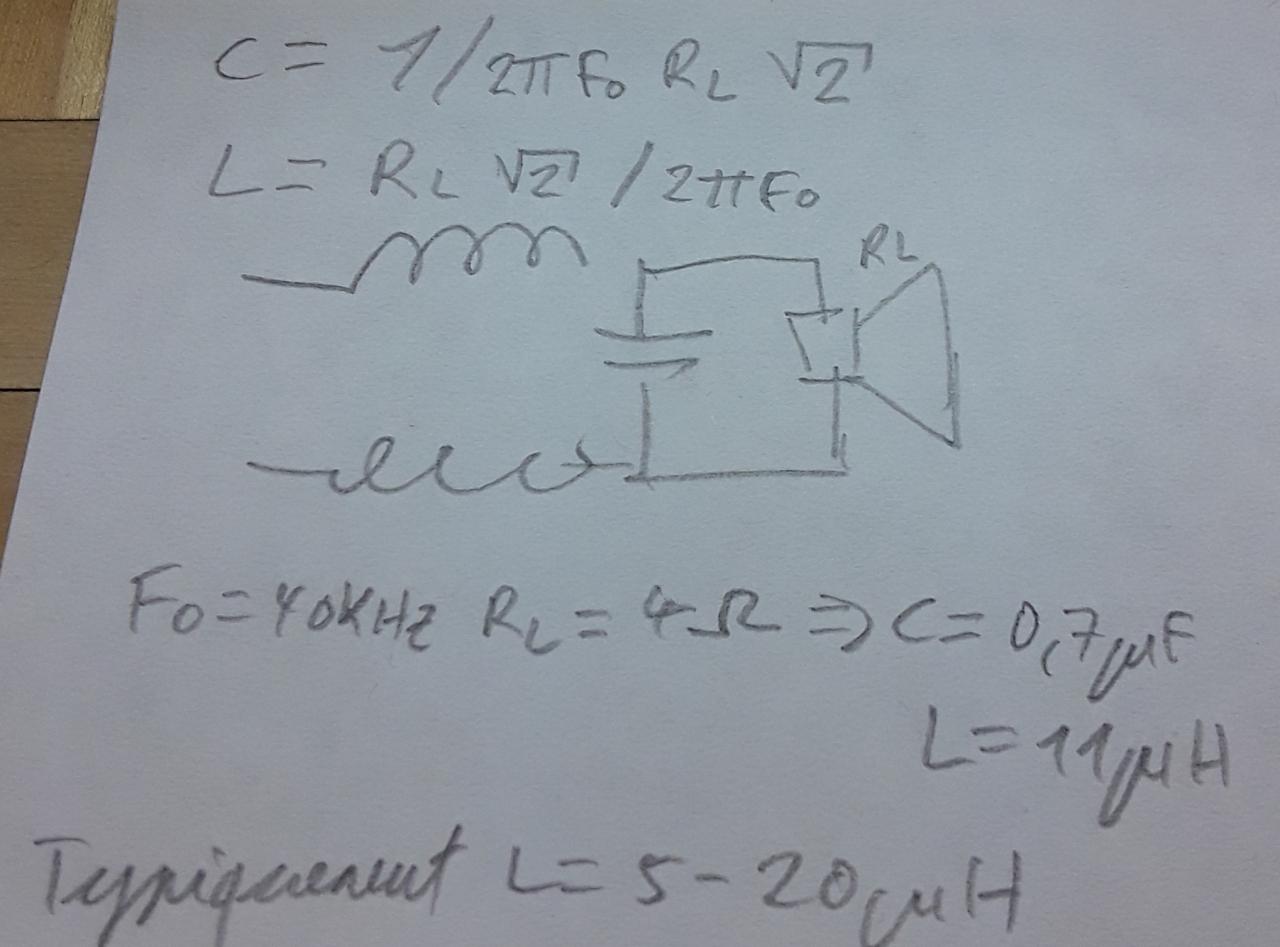 C = 1/2πF₀ R_L √2
L = R_L √2 / 2πF₀
R_L
F₀ = 40KHz R_L = 4Ω ⇒ C = 0,7µF
L = 11µH
Typiquement L = 5 - 20µH